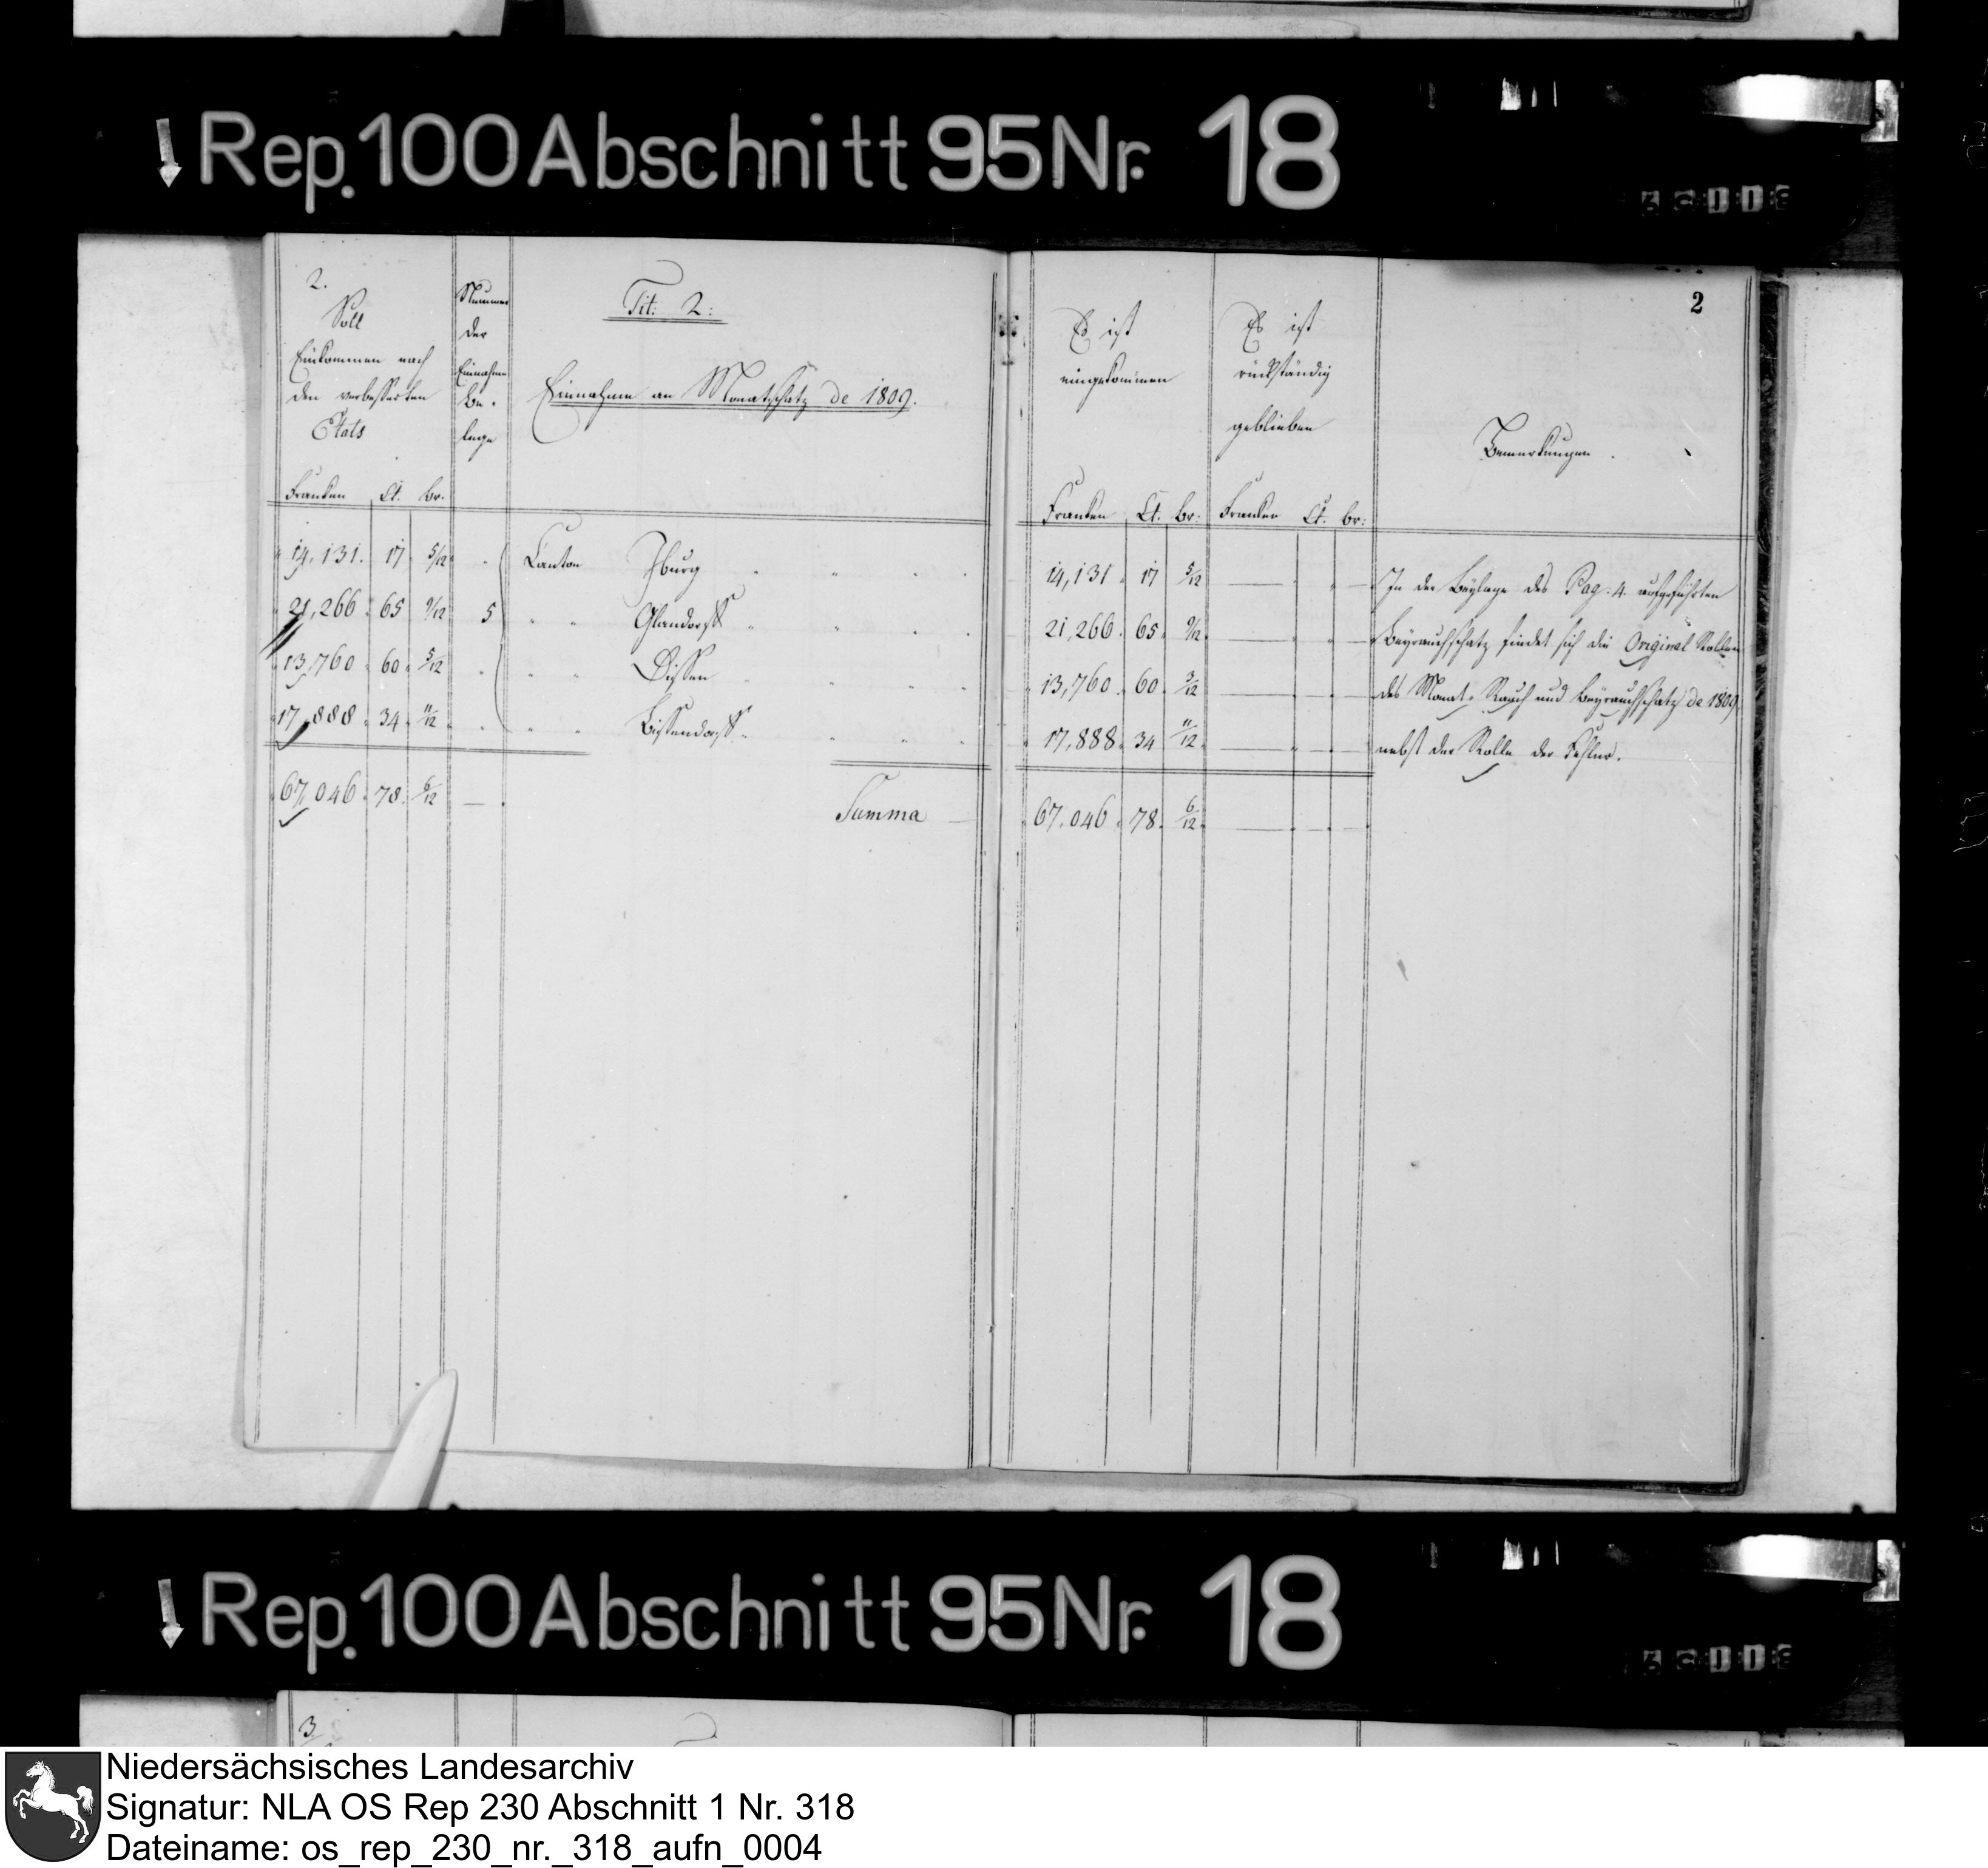 Rep. 100 Abschnitt 95 Nr. 18
2.
Soll
Einkommen nach
den verbesserten
Etats
Franken Ct. br.
Nummer
der
Einnahme
Be-
lege
Tit: 2:
Einnahme an Monatschatz de 1809.
Es ist
eingekommen
Franken Ct. br:
Es ist
rückständig
geblieben
Franken Ct. br:
2
Bemerkungen.
14,131. 17 5/12 Canton Iburg 14,131 17 5/12
21,266 65 9/12 5 " " Glandorff 21,266. 65. 9/12
13,760 60 5/12 " " Dissen 13,760. 60 3/12
17,888 34 11/12 " " Bissendorff 17,888. 34 11/12
67,046 78 6/12 Summa 67,046 78. 6/12
In der Beylage des Pag. 4. aufgeführten
Beyrauchschatz findet sich die Original Rollen
des Monat- Rauch und Beyrauchschatz de 1809
nebst der Rolle der Fehler.
Rep. 100 Abschnitt 95 Nr. 18
3
Niedersächsisches Landesarchiv
Signatur: NLA OS Rep 230 Abschnitt 1 Nr. 318
Dateiname: os_rep_230_nr._318_aufn_0004